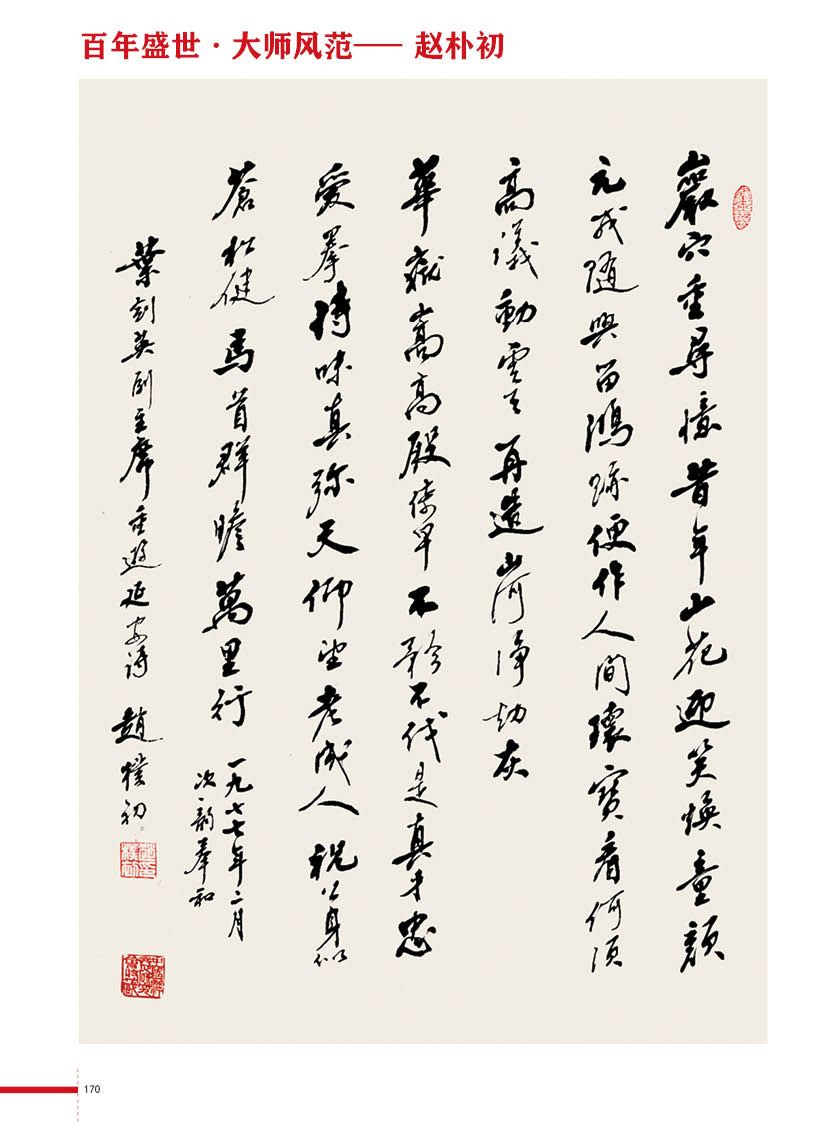 百年盛世·大师风范—— 赵朴初
巖穴重尋憶昔年山花迎笑煥童顏
元戎随興留鴻跡便作人間瓌寶看何須
高議動雲天再造山河淨劫灰
華嶽嵩高殿傣早不矜不伐是真才忠
愛拳情味真弥天仰望老成人祝公身似
蒼松健馬首群瞻萬里行一九七七年二月
次韵奉和
葉剑英副主席重遊延安詩 趙樸初
170